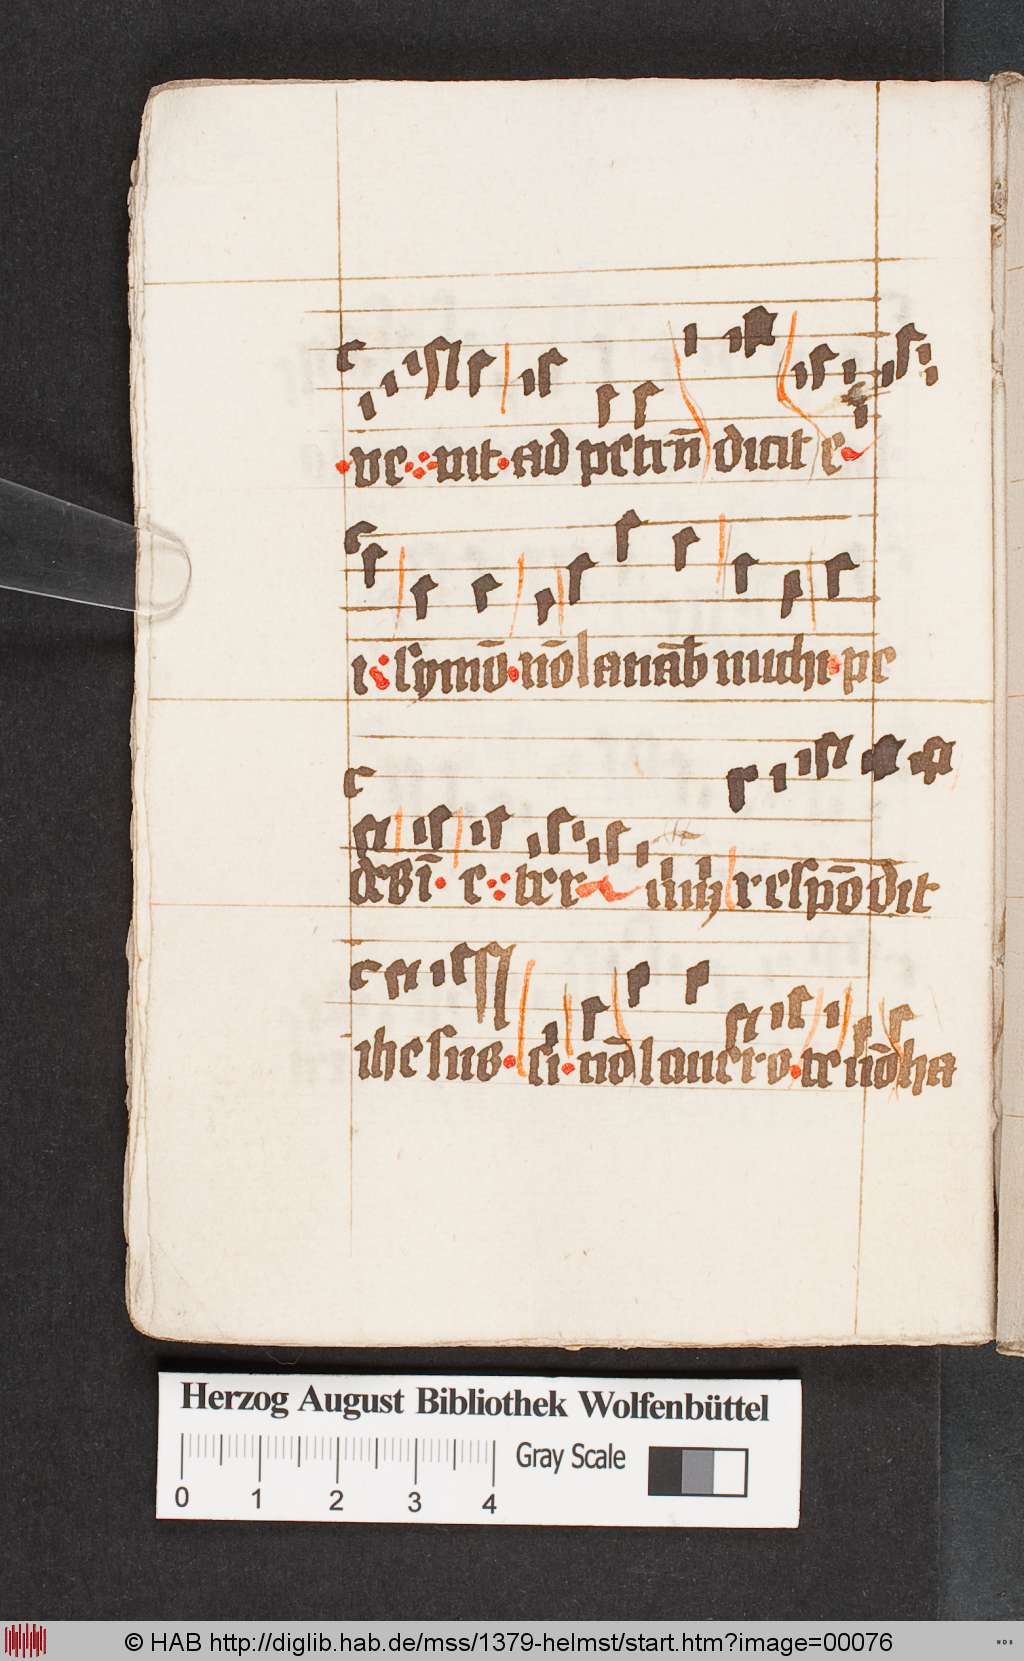 ve nit ad petrū dicit e
i symō nō lauab michi pe
des ī e ter nuʒ respōdit
ihe sus si nō lauero te nō ha
Herzog August Bibliothek Wolfenbüttel
0 1 2 3 4 Gray Scale
© HAB http://diglib.hab.de/mss/1379-helmst/start.htm?image=00076